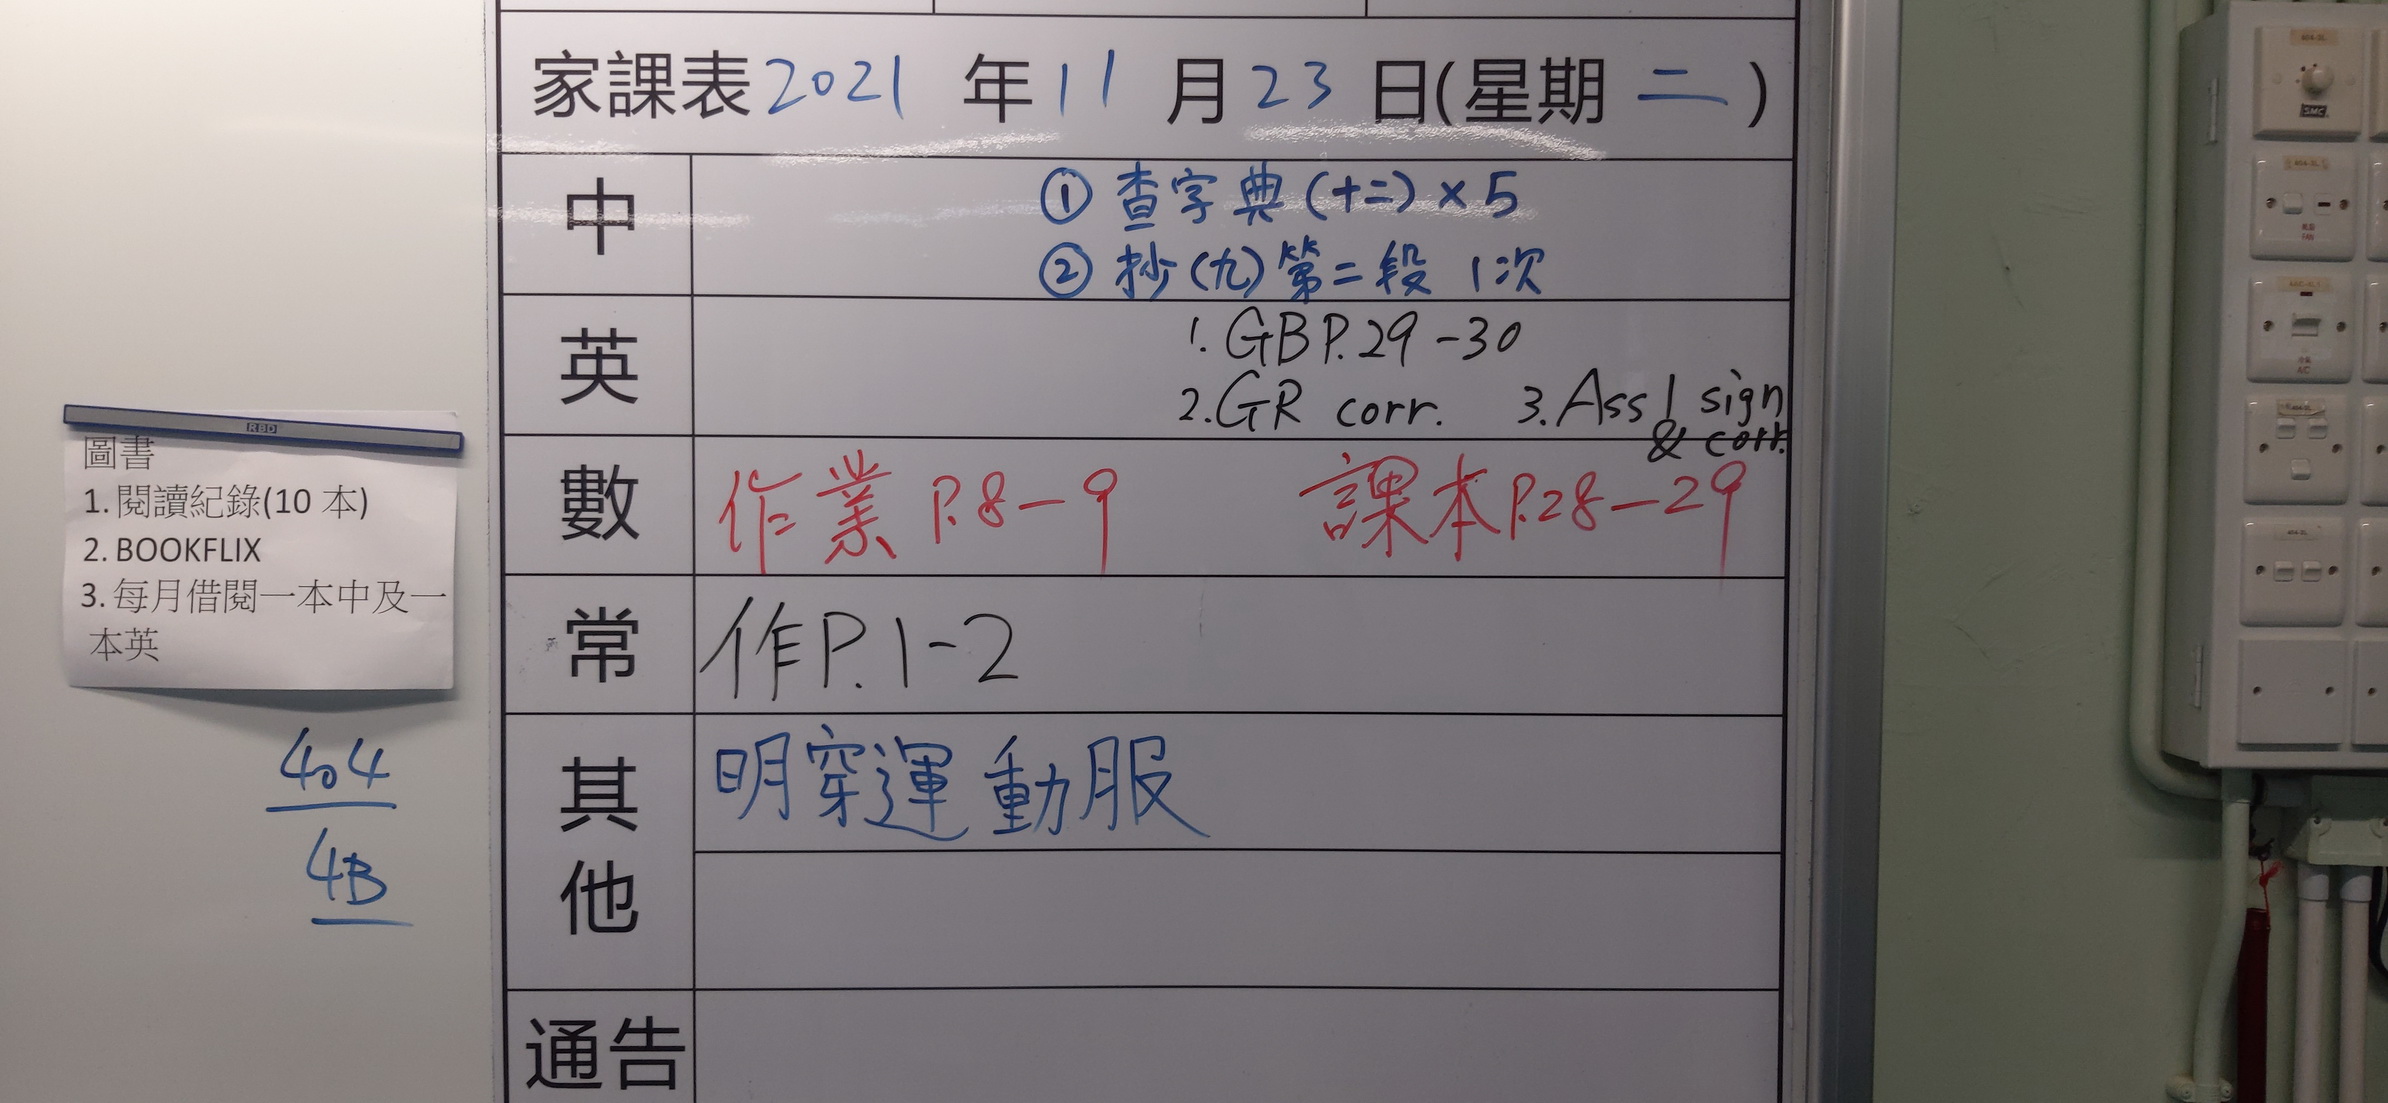 家課表 2021 年 11 月 23 日(星期 二 )
中
① 查字典 (十二) × 5
② 抄 (九) 第二段 1次
英
1. GB P.29 - 30
2. GR corr. 3. Ass 1 sign
& corr.
數
作業 P.8 - 9 課本 P.28 - 29
常
作 P. 1 - 2
其他
明穿運動服
通告
RBD
圖書
1. 閱讀紀錄(10 本)
2. BOOKFLIX
3. 每月借閱一本中及一
本英
404
4B
SMC
FAN
A/C